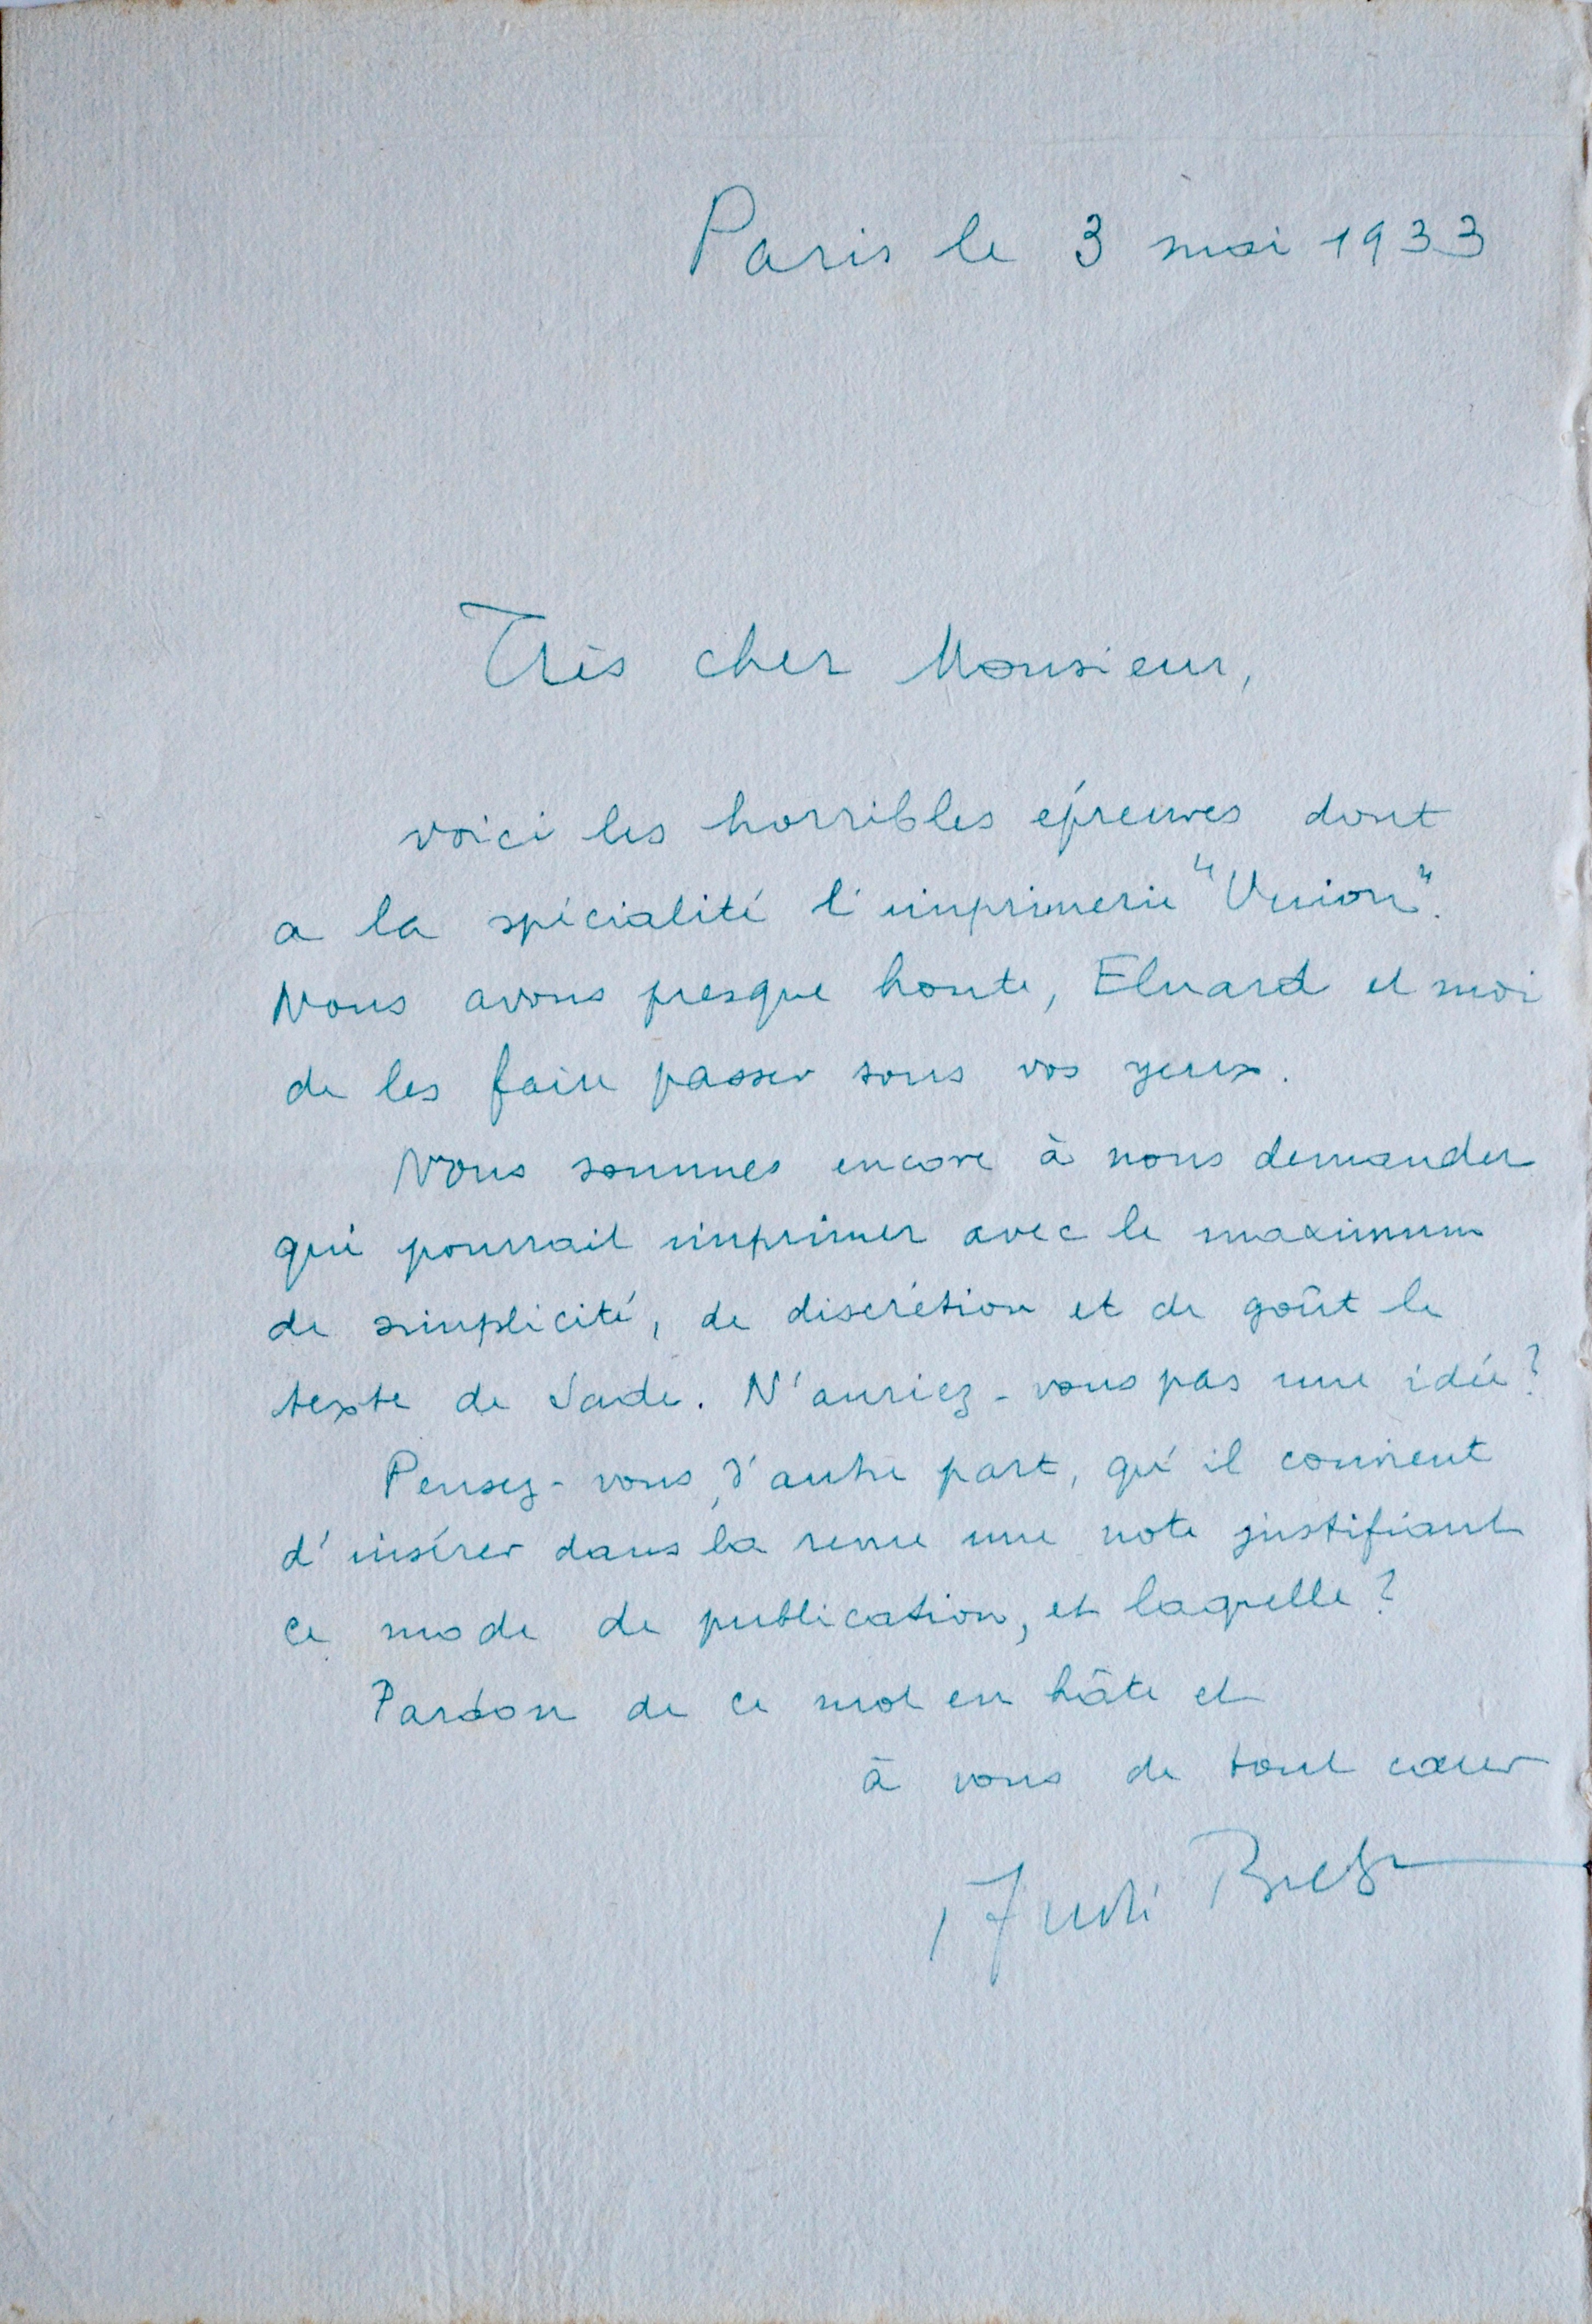 Paris le 3 mai 1933
Très cher Monsieur,
voici les horribles épreuves dont
a la spécialité l'imprimerie "Union".
Nous avons presque honte, Eluard et moi
de les faire passer sous vos yeux.
Nous sommes encore à nous demander
qui pourrait imprimer avec le maximum
de simplicité, de discrétion et de goût le
texte de Sade. N'auriez-vous pas une idée?
Pensez-vous, d'autre part, qu'il convient
d'insérer dans la revue une note justifiant
ce mode de publication, et laquelle?
Pardon de ce mot en hâte et
à vous de tout cœur
André Breton